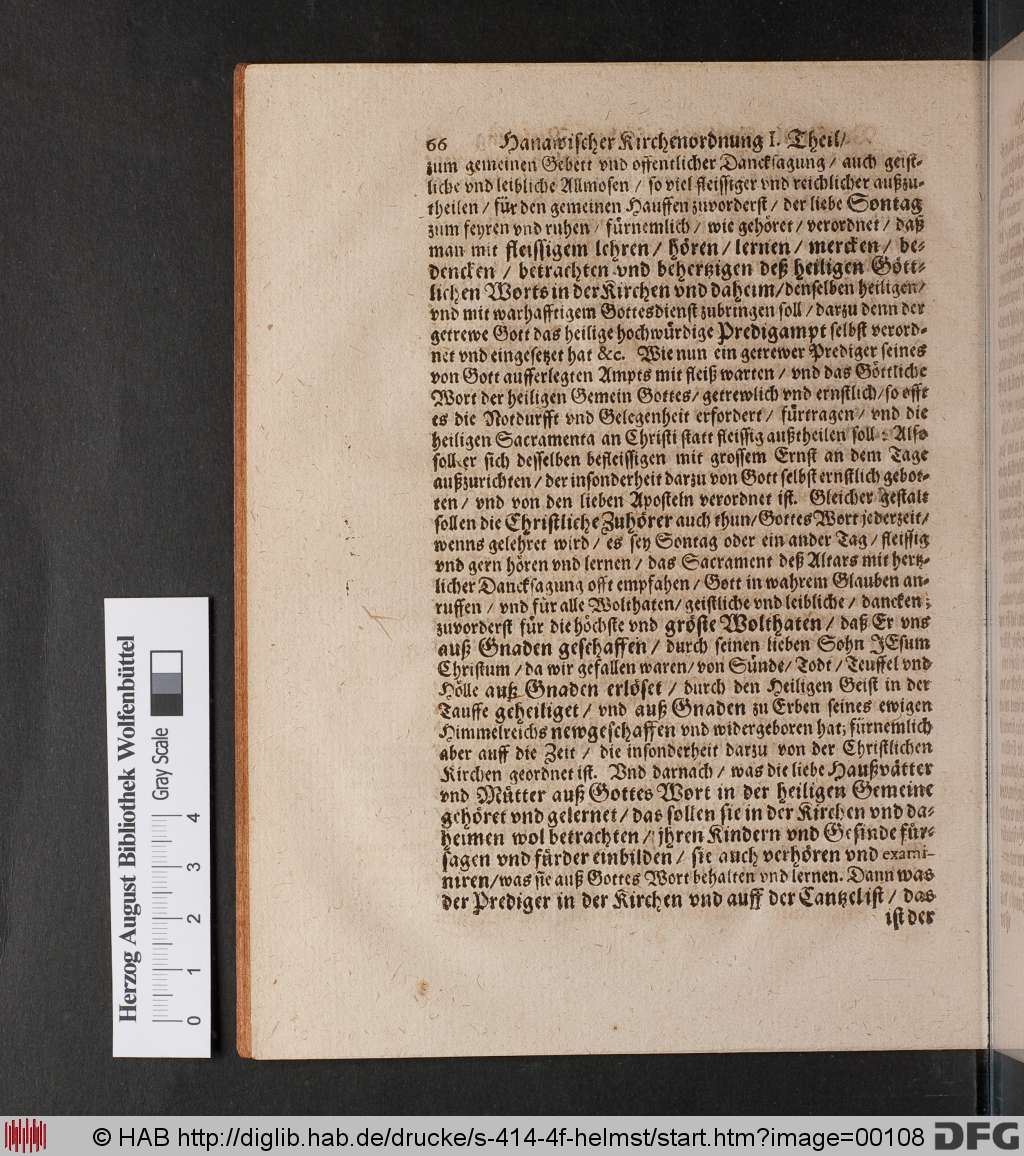 66 Hanawischer Kirchenordnung I. Theil/
zum gemeinen Gebett vnd offentlicher Dancksagung / auch geist-
liche vnd leibliche Allmosen / so viel fleissiger vnd reichlicher außzu-
theilen / für den gemeinen Hauffen zuvorderst / der liebe Sontag
zum feyren vnd ruhen / fürnemlich / wie gehöret / verordnet / daß
man mit fleissigem lehren / hören / lernen / mercken / be-
dencken / betrachten vnd behertzigen deß heiligen Gött-
lichen Worts in der Kirchen vnd daheim / denselben heiligen /
vnd mit warhafftigem Gottesdienst zubringen soll / darzu denn der
getrewe Gott das heilige hochwürdige Predigampt selbst verord-
net vnd eingesetzet hat &c. Wie nun ein getrewer Prediger seines
von Gott aufferlegten Ampts mit fleiß warten / vnd das Göttliche
Wort der heiligen Gemein Gottes / getrewlich vnd ernstlich / so offt
es die Notdurfft vnd Gelegenheit erfordert / fürtragen / vnd die
heiligen Sacramenta an Christi statt fleissig außtheilen soll: Also
soll er sich desselben befleissigen mit grossem Ernst an dem Tage
außzurichten / der insonderheit darzu von Gott selbst ernstlich gebot-
ten / vnd von den lieben Aposteln verordnet ist. Gleicher gestalt
sollen die Christliche Zuhörer auch thun / Gottes Wort jederzeit /
wenns gelehret wird / es sey Sontag oder ein ander Tag / fleissig
vnd gern hören vnd lernen / das Sacrament deß Altars mit hertz-
licher Dancksagung offt empfahen / Gott in wahrem Glauben an-
ruffen / vnd für alle Wolthaten / geistliche vnd leibliche / dancken;
zuvorderst für die höchste vnd gröste Wolthaten / daß Er vns
auß Gnaden geschaffen / durch seinen lieben Sohn JEsum
Christum / da wir gefallen waren / von Sünde / Todt / Teuffel vnd
Hölle auß Gnaden erlöset / durch den Heiligen Geist in der
Tauffe geheiliget / vnd auß Gnaden zu Erben seines ewigen
Himmelreichs newgeschaffen vnd widergeboren hat; fürnemlich
aber auff die Zeit / die insonderheit darzu von der Christlichen
Kirchen geordnet ist. Vnd darnach / was die liebe Haußvätter
vnd Mütter auß Gottes Wort in der heiligen Gemeine
gehöret vnd gelernet / das sollen sie in der Kirchen vnd da-
heimen wol betrachten / jhren Kindern vnd Gesinde für-
sagen vnd fürder einbilden / sie auch verhören vnd exami-
niren / was sie auß Gottes Wort behalten vnd lernen. Dann was
der Prediger in der Kirchen vnd auff der Cantzel ist / das
ist der
Herzog August Bibliothek Wolfenbüttel
Gray Scale
0 1 2 3 4
© HAB http://diglib.hab.de/drucke/s-414-4f-helmst/start.htm?image=00108
DFG